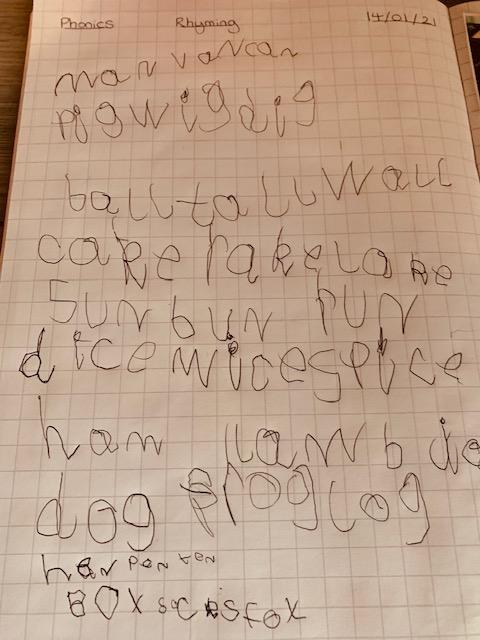 Phonics Rhyming 14/01/21
man van can
pig wig dig
ball tall wall
cake rake lake
sun bun run
dice mice spice
ham lamb
dog frog log
hen pen ten
BOX socks fox